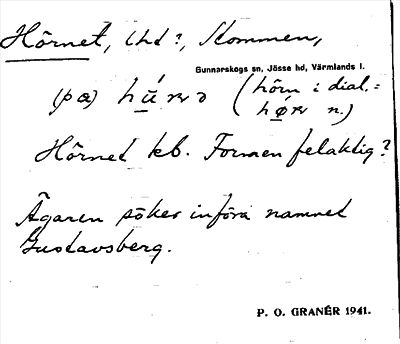 Hörnet, lhd?, Stommen,
Gunnarskogs sn, Jösse hd, Värmlands l.
(på) hǘrnə (hörn i dial. =
hø̨rn n.)
Hörnet kb. Formen felaktig?
Ägaren söker införa namnet
Gustavsberg.
P. O. GRANÉR 1941.